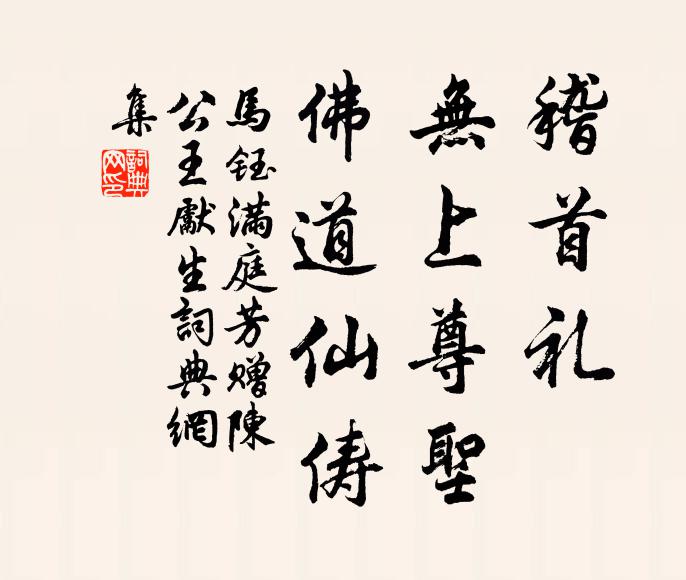 稽首礼
無上尊聖
佛道仙俦
馬鈺满庭芳赠陳
公王獻生詞典網
集
詞典
网印